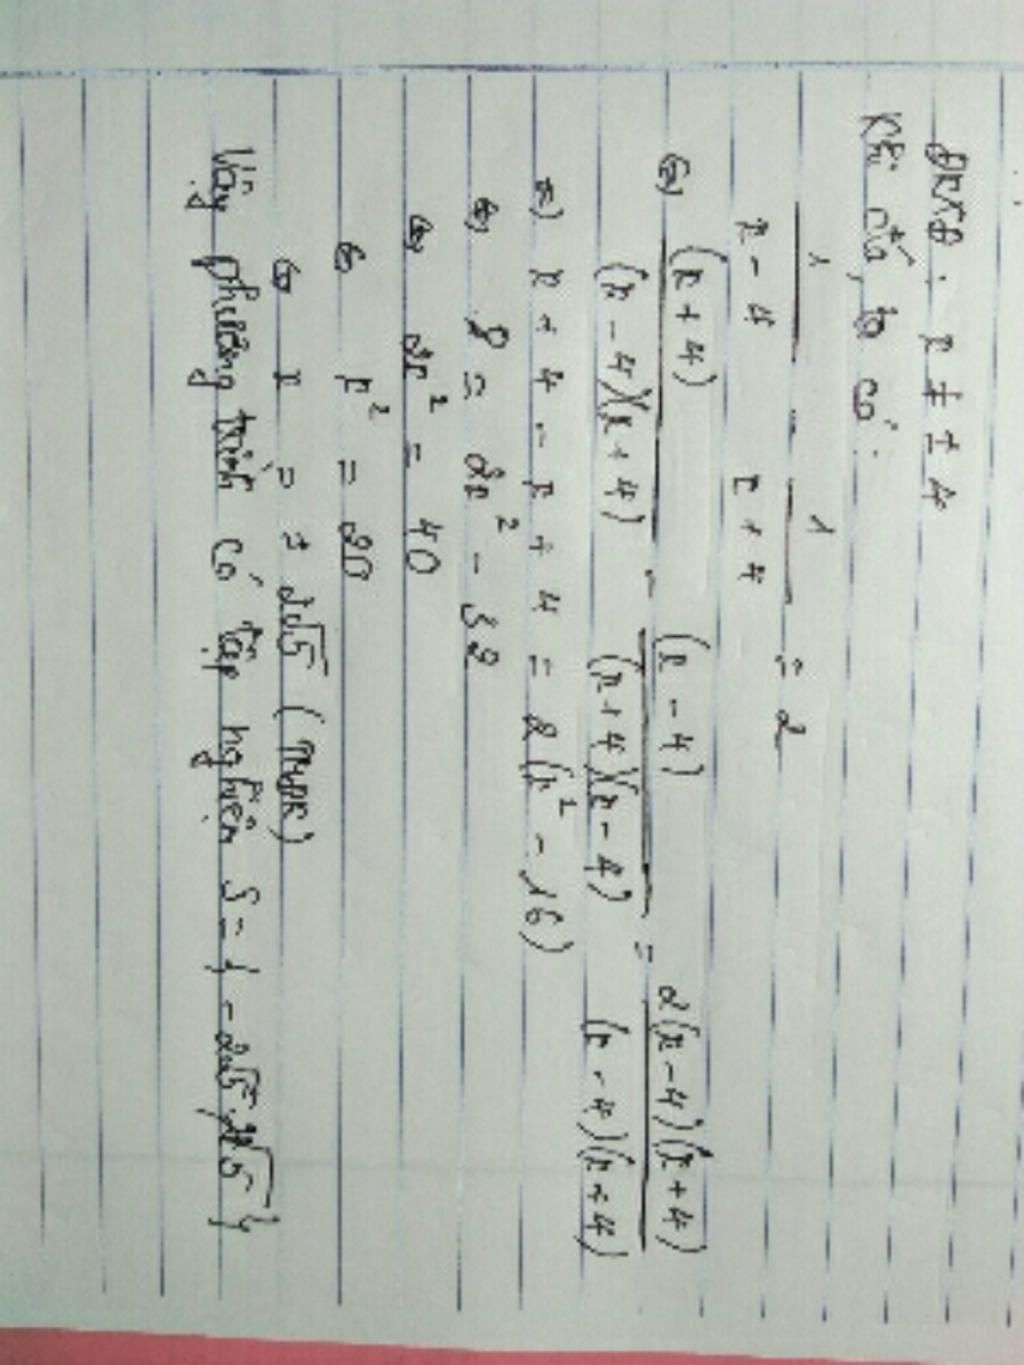 ĐKXĐ : x ≠ ± 4
Khi đó, ta có :
1/(x - 4) - 1/(x + 4) = 2
⇔ (x + 4)/((x - 4)(x + 4)) - (x - 4)/((x + 4)(x - 4)) = 2(x - 4)(x + 4)/((x - 4)(x + 4))
⇒ x + 4 - x + 4 = 2(x² - 16)
⇔ 8 = 2x² - 32
⇔ 2x² = 40
⇔ x² = 20
⇔ x = ± 2√5 (TMĐK)
Vậy phương trình có tập nghiệm S = { -2√5; 2√5 }